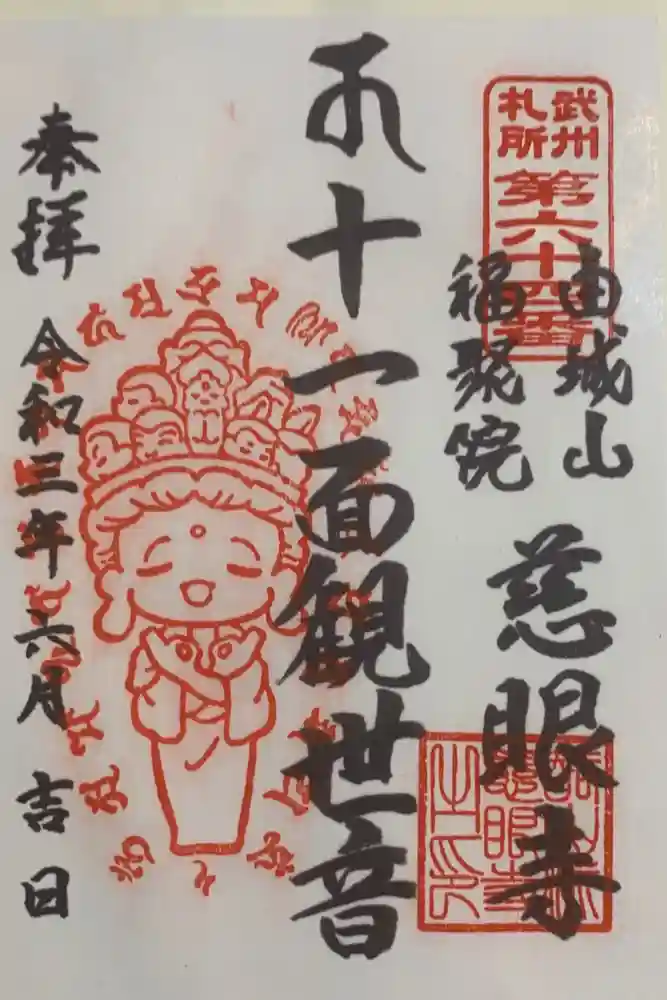 武州
札所
第六十四番
由城山
福聚院
慈眼寺
十一面観世音
奉拝 令和三年 六月 吉日